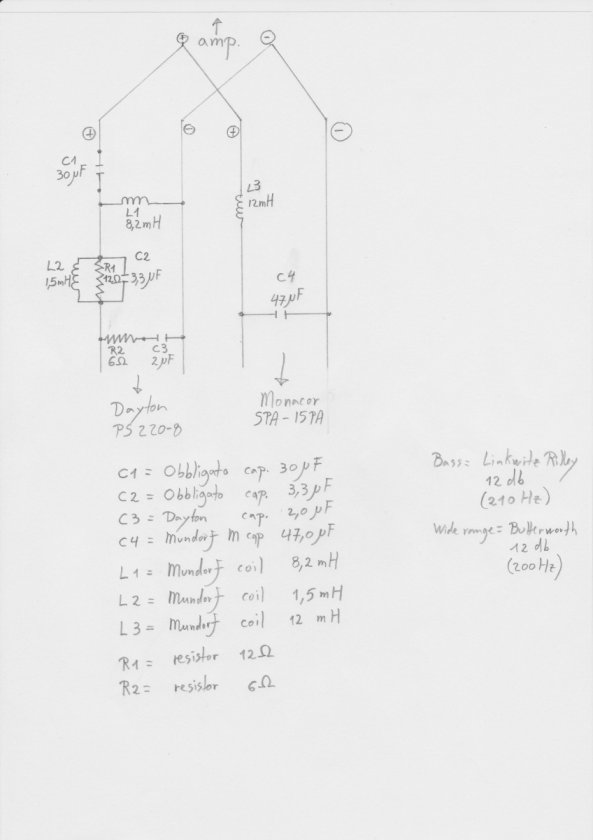 ⊕ amp. ⊖
⊕ ⊖ ⊕ ⊖
C1
30µF
L1
8,2mH
L3
12mH
C2
L2 R1
1,5mH 12Ω 3,3µF
C4
47µF
R2 C3
6Ω 2µF
Dayton
PS220-8
Monacor
SPA-15PA
C1 = Obbligato cap. 30µF
C2 = Obbligato cap. 3,3µF
C3 = Dayton cap. 2,0µF
C4 = Mundorf M cap 47,0µF
L1 = Mundorf coil 8,2mH
L2 = Mundorf coil 1,5mH
L3 = Mundorf coil 12 mH
R1 = resistor 12Ω
R2 = resistor 6Ω
Bass = Linkwitz Rilley
12 db
(210 Hz)
Wide range = Butterworth
12 db
(200Hz)